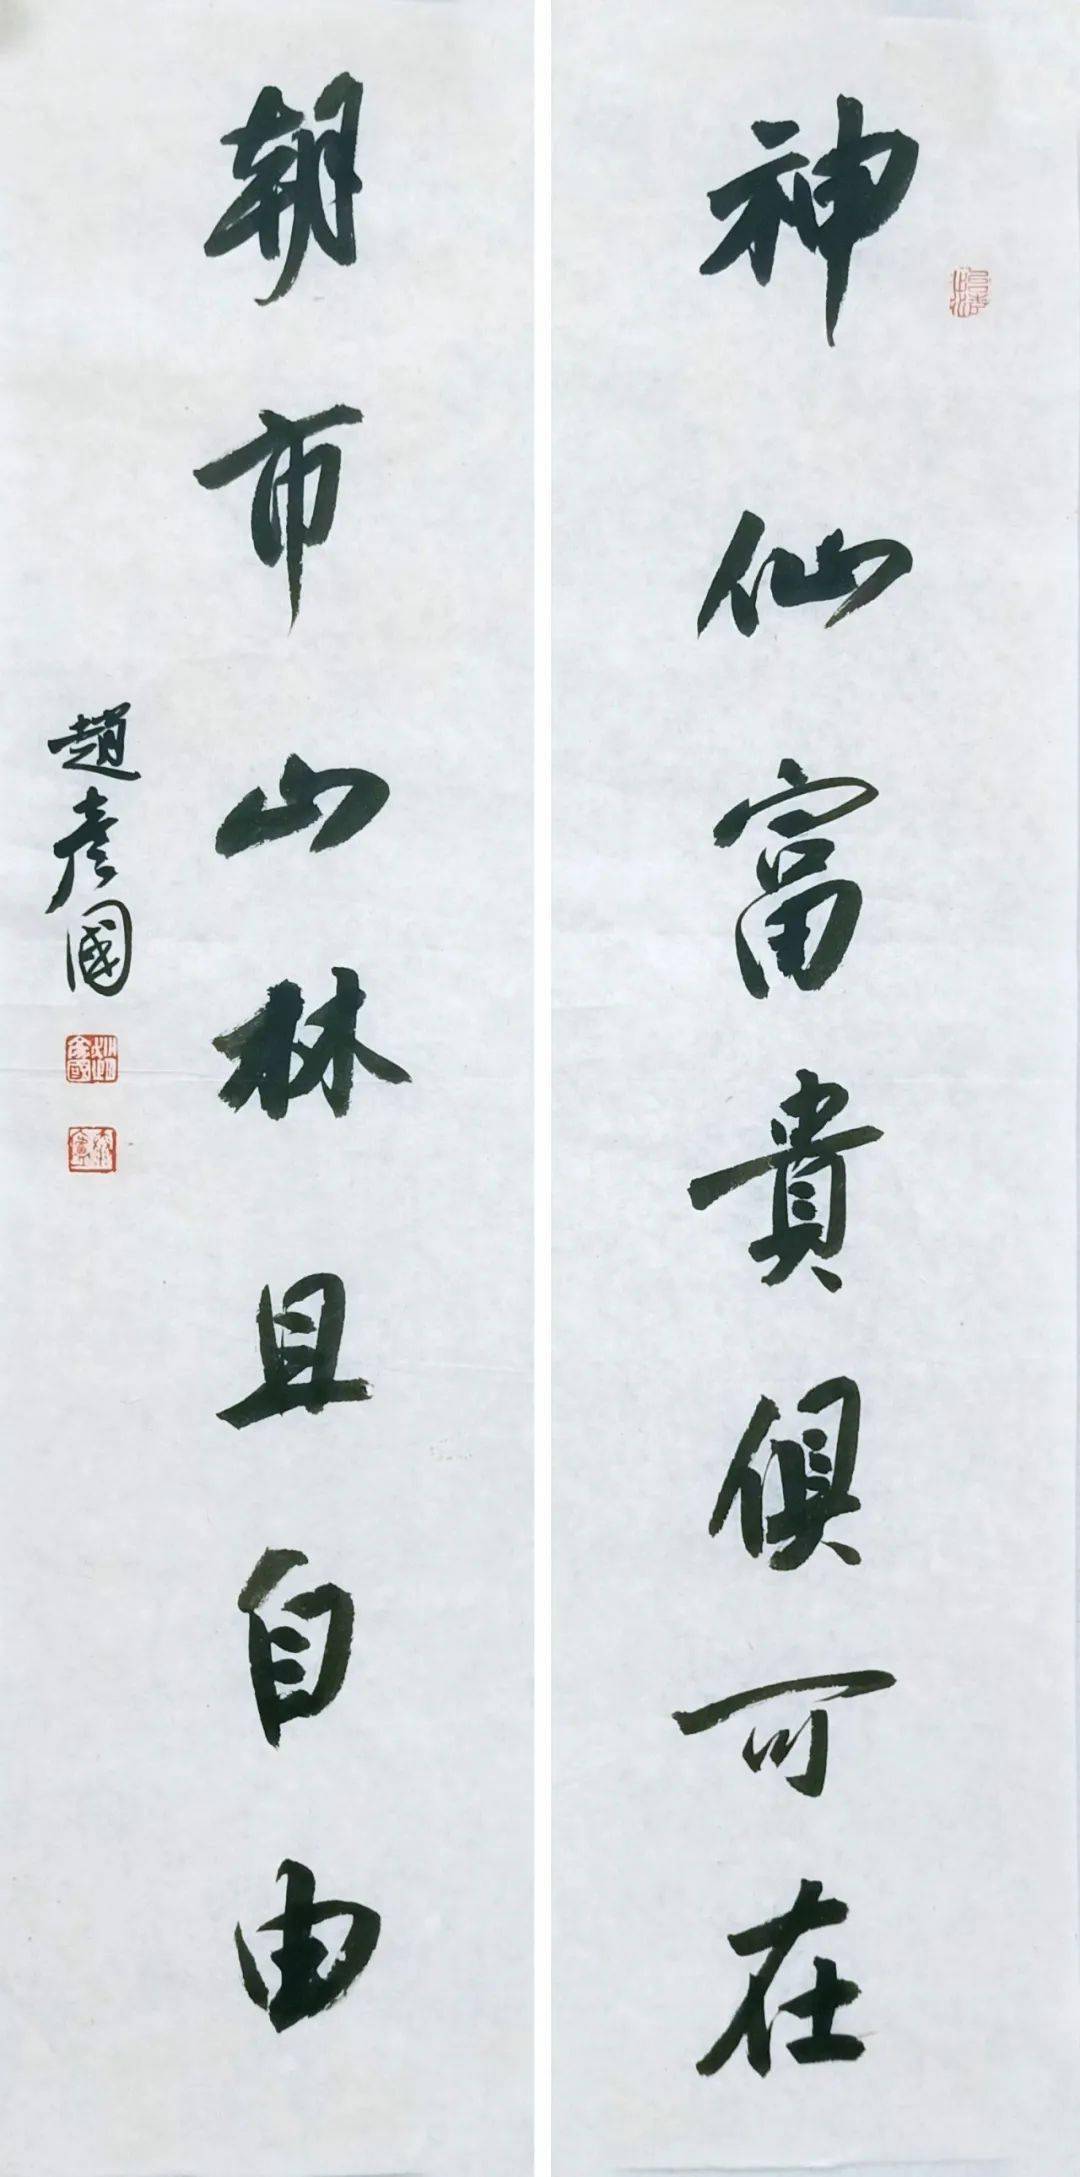 神仙富貴俱可在
朝市山林且自由
趙彥國